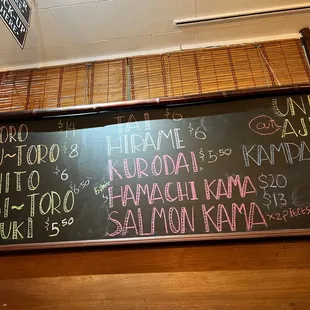 PICK UP
ORDER
TORO $14
TAI
HIRAME 6
KURODAI $5.50
HAMACHI KAMA $20
SALMON KAMA $13
x2 pieces
~TORO $8
ITO $6
~TORO $6.50
UKI $5.50
OUT
UNI
KAMPA